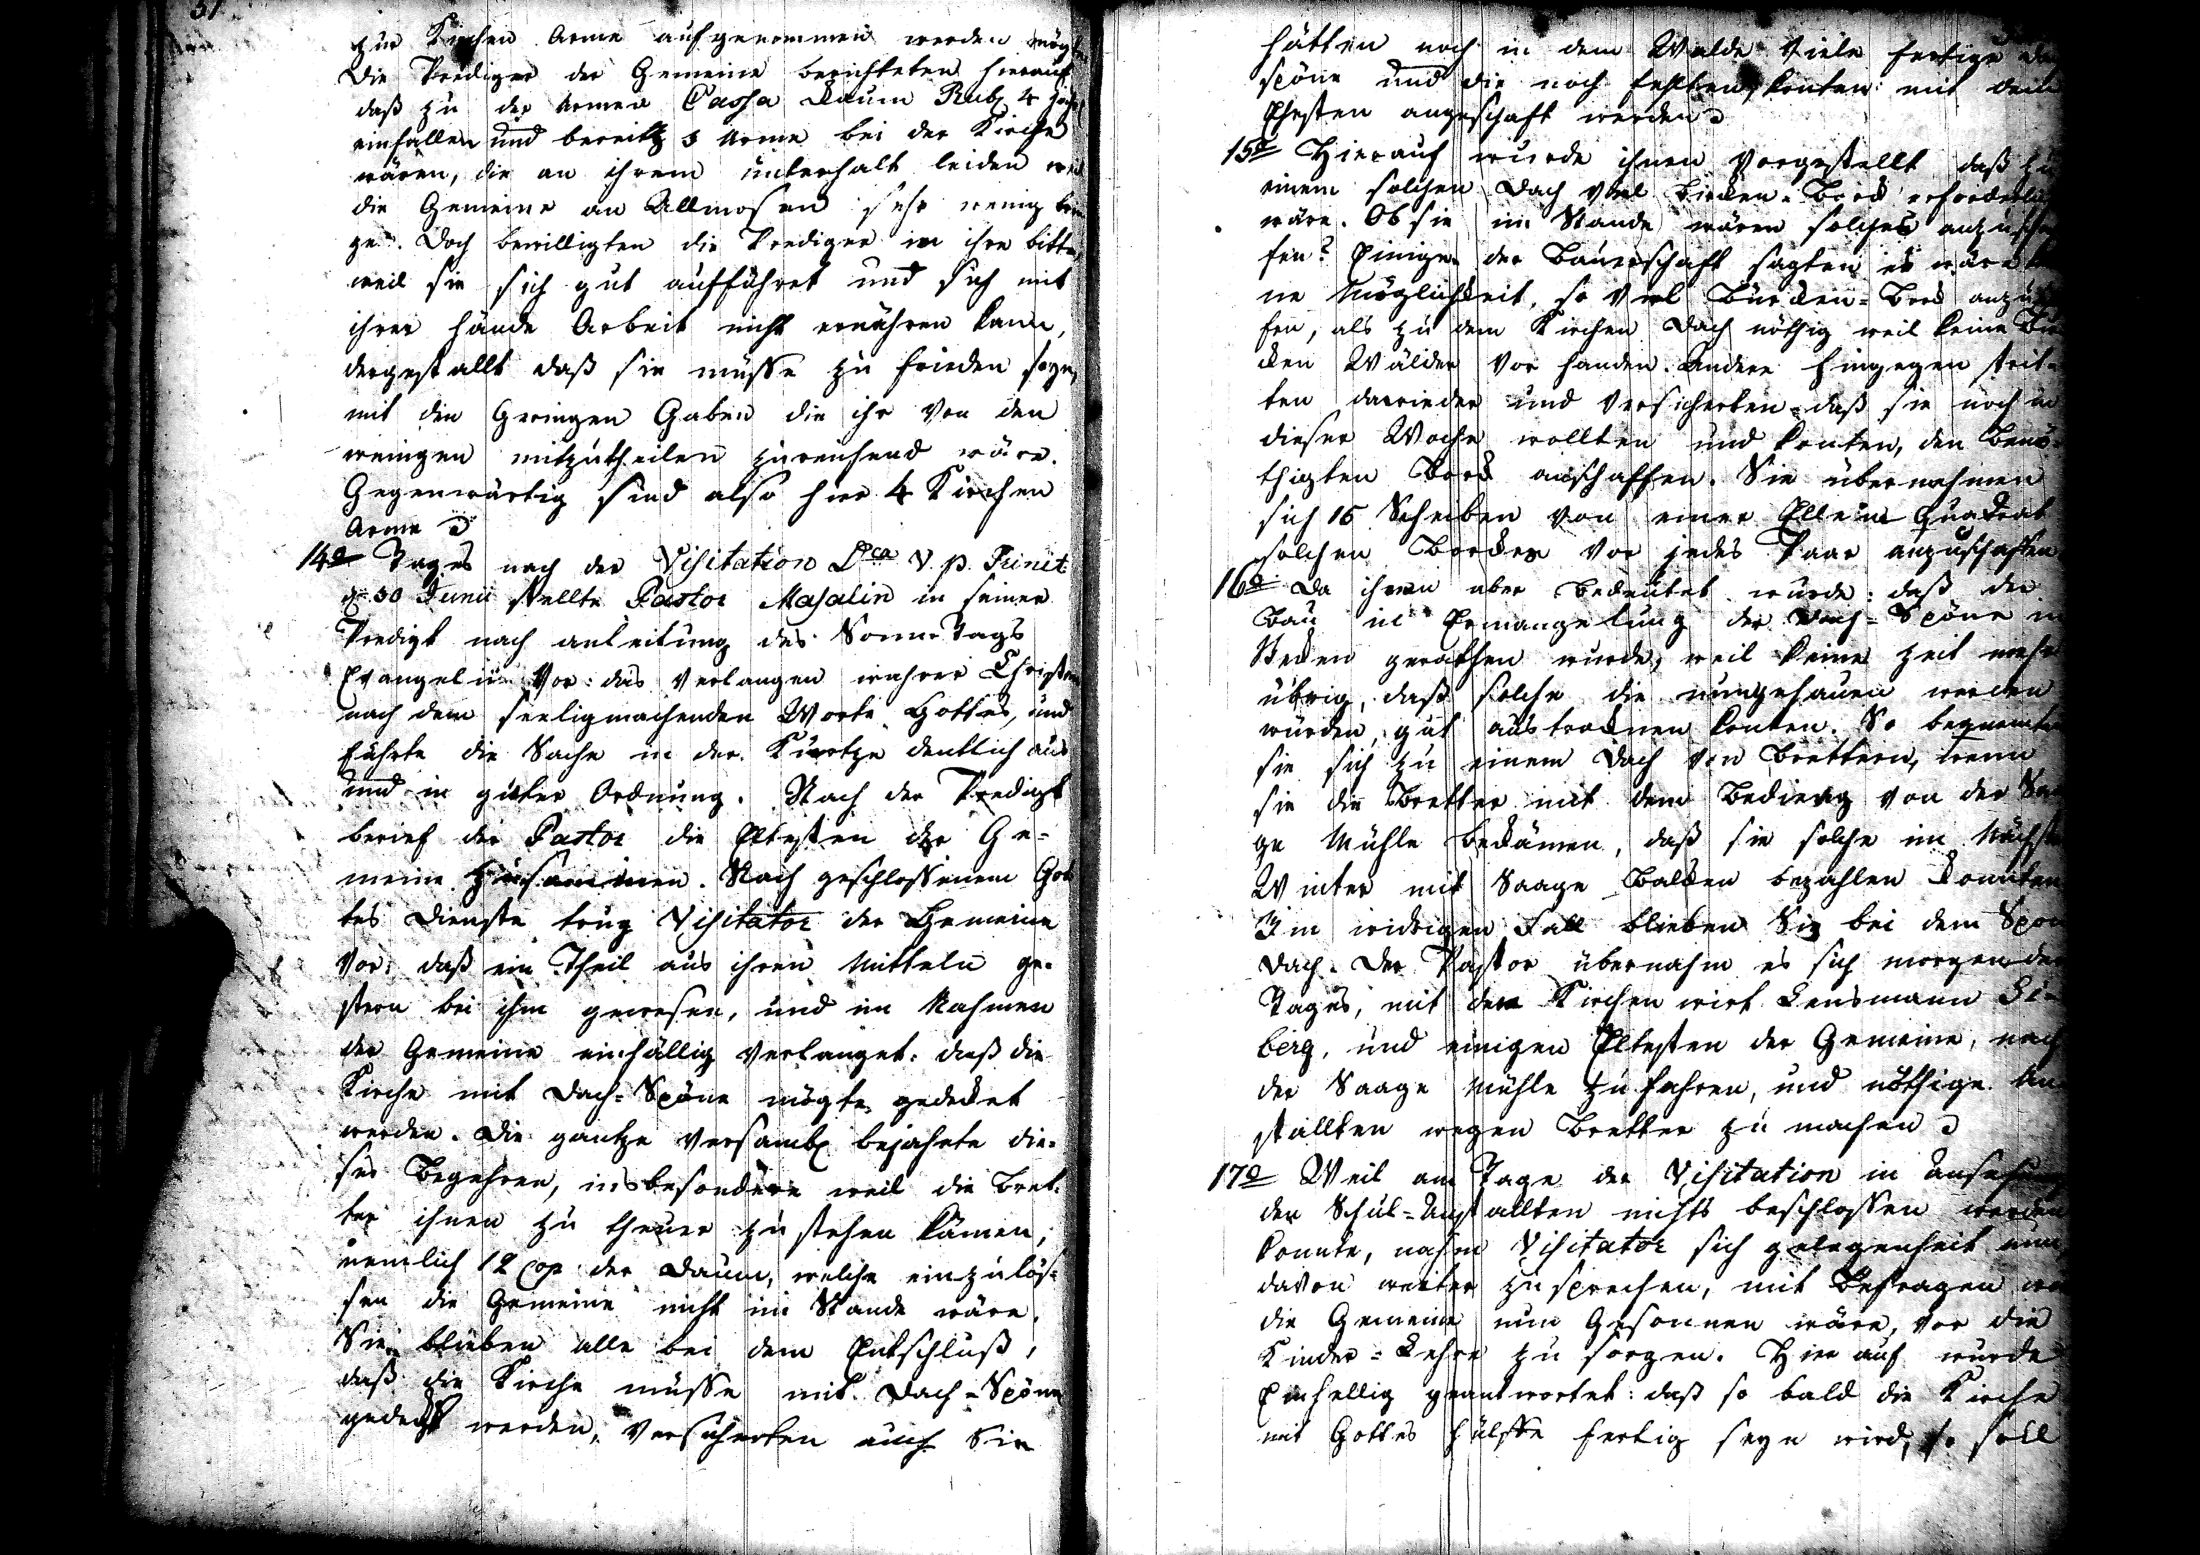 zur Kirchen Arme aufgenommen werden mögte
Die Prediger der Gemeine berichteten hierauf
daß zu der Armen Cassa kaum Rub. 4 jährl
einfallen und bereits 3 Arme bei der Kirche
wären, die an ihrem unterhalt leiden weil
die Gemeine an Allmosen sehr wenig brin
ge. Doch bewilligten die Prediger in ihre bitte,
weil sie sich gut aufführet und sich mit
ihrer hände Arbeit nicht ernähren kann,
dergestallt daß sie müsse zu frieden seyn,
mit die Geringen Gaben die ihr von den
weingen mitzutheilen zureichend wäre.
Gegenwärtig sind also hier 4 Kirchen
Arme
14o Tages nach der Visitation Dca V. p. Trinit
d. 30 Junii stellte Pastor Masalin in seiner
Predigt nach anleitung des Sonn-Tags
Evangelii vor: das Verlangen wahrer Christen
nach dem seeligmachenden Worte Gottes, und
führte die Sache in der Kürtze deutlich aus
und in guter Ordnung. Nach der Predigt
berief der Pastor die Eltesten der Ge-
meine zusammen. Nach geschlossenem Got
tes Dienste trug Visitator der Gemeine
vor: daß ein Theil aus ihren Mitteln ge-
stern bei ihm gewesen, und im Nahmen
der Gemeine einhällig verlanget: daß die
Kirche mit Dach-Spöne mögte gedecket
werden. Die gantze Versaml. bejahete die-
ses Begehren, insbesondere weil die Bret-
ter ihnen zu theuer zu stehen kämen,
nemlich 12 Cop. der Daum, welche einzulös-
sen die Gemeine nicht im Stande wäre.
Sie blieben alle bei dem Entschluß,
daß die Kirche müsse mit Dach-Spöne
gedeckt werden, versicherten auch Sie
hätten noch in dem Walde viele fertige
spöne und die noch fehlten, konten mit dem
Ehesten angeschaft werden
15o Hierauf wurde ihnen vorgestellt daß zu
einem solchen Dach viel bircken-Borck erforderlich
wäre. Ob sie im Stande wären solches anzuschaf
fen? Einige der Bauerschaft sagten es wäre kei
ne Möglichkeit, so viel Bürcken-Borck anzuschaf
fen, als zu dem Kirchen Dach nöthig weil keine Bir
cken Wälder vor handen. Andere hingegen strit-
ten darwieder und versicherten daß sie noch in
dieser Woche wollten und konten, den benö-
thigten Borck anschaffen. Sie übernahmen
sich 15 Scheiben von einer Ellein Quadrat
solchen Borckes vor jedes Paar anzuschaffen
16o Da ihnen aber bedeutet wurde: daß der
Bau in Ermangelung der Dach-Spöne in
Stecken gerathen wurde, weil keine Zeit mehr
übrig, daß solche die nungehauen werden
würden, gut austrocknen konten. So bequemten
sie sich zu einem Dach von Brettern, wenn
sie die Bretter mit dem Beding von der Saa
ge Mühle bekämen, daß sie solche im Nächsten
Winter mit Saage Balcken bezahlen konnten
Im widrigen Fall blieben Sie bei dem Spon
Dach. Der Pastor übernahm es sich morgenden
Tages, mit dem Kirchen wirt Lensmann Si-
berg, und einigen Eltesten der Gemeine, nach
der Saage Mühle zu fahren, und nöthige An-
stallten wegen Bretter zu machen
17o Weil am Tage der Visitation in Ansehung
der Schul-Anstallten nichts beschlossen werden
konnte, nahm Visitator sich gelegenheit nun
davon weiter zu sprechen, mit Befragen wie
die Gemeine nun Gesonnen wäre, vor die
Kinder-Lehre zu sorgen. Hier auf wurde
Einhellig geantwortet: daß so bald die Kirche
mit Gottes hülffe fertig seyn wird, so soll